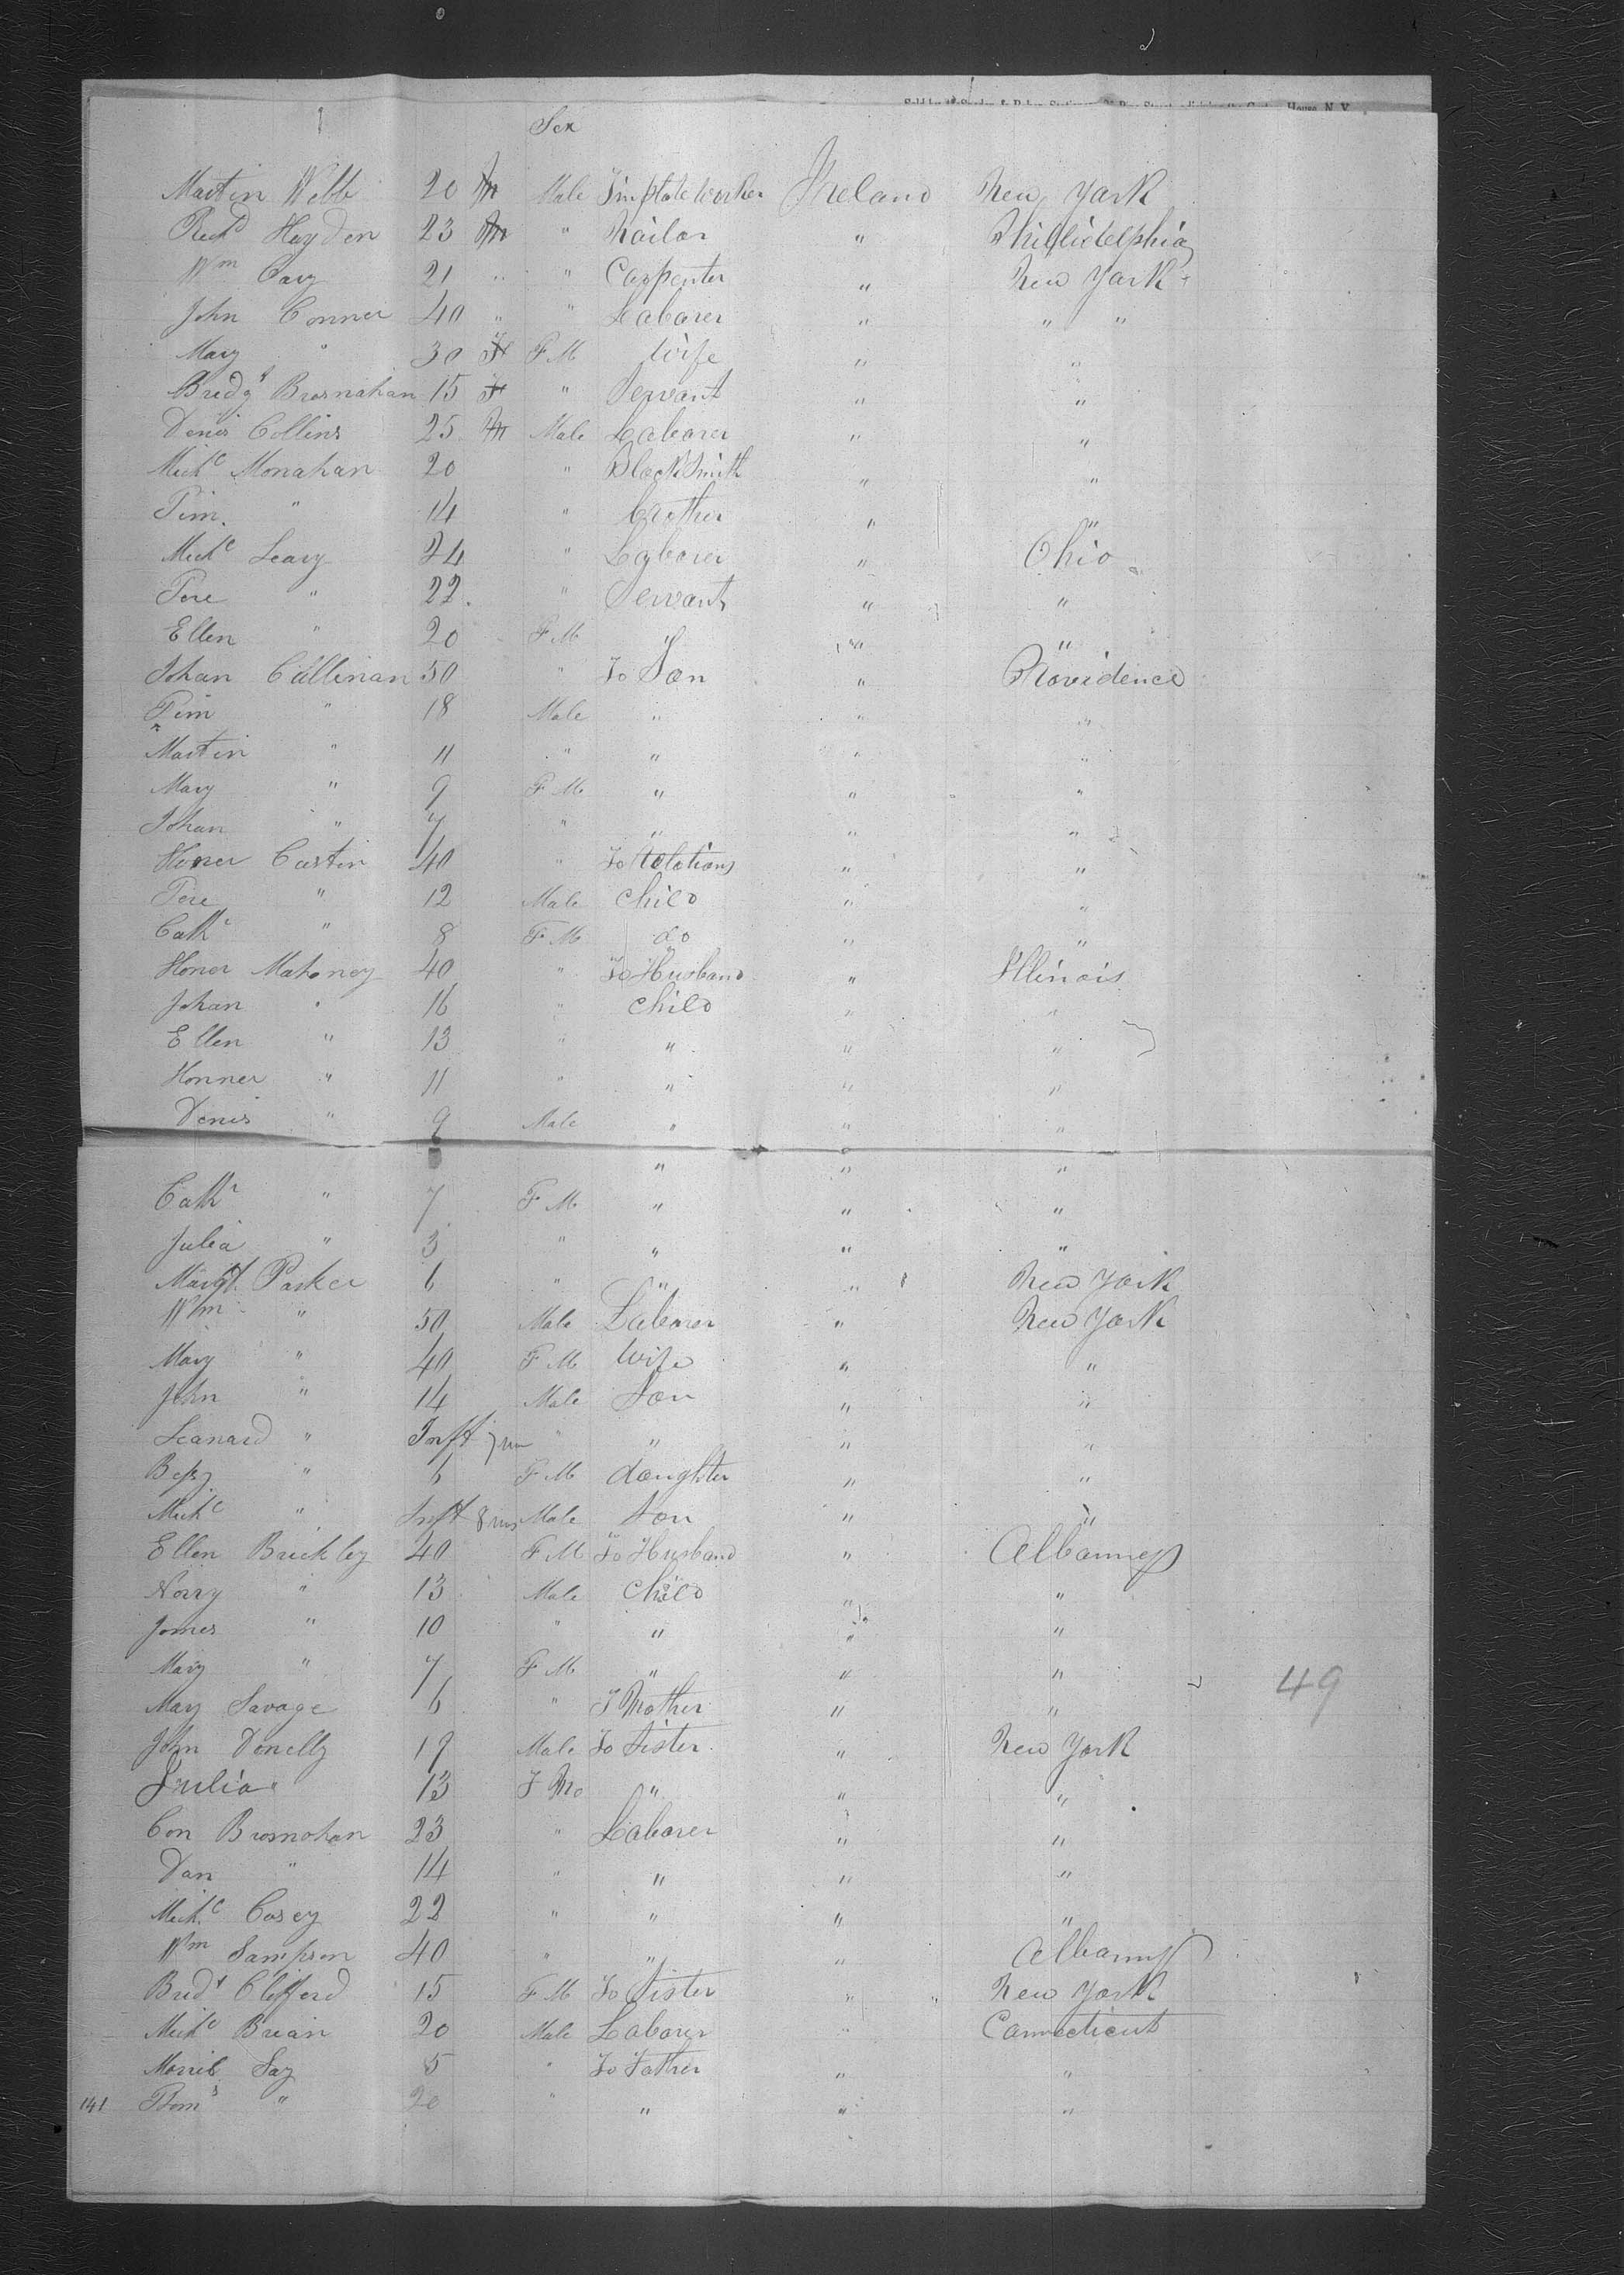 House, N. Y.
Sex
Martin Webb 20 M Male Tinplate Worker Ireland New York
Richd Hayden 23 M " Nailor " Phillidelphia
Wm Cary 21 " " Carpenter " New York
John Conner 40 " " Labarer " " "
Mary " 30 F F M Wife " "
Bridgt Brosnahan 15 F " Servant " "
Denis Collins 25 M Male Labarer " "
Michl Monahan 20 " BlackSmith " "
Tim. " 14 " brother " "
Michl Leary 24 " Labarer " Ohio
Pere " 22 " Servant " "
Ellen " 20 F M " " "
Johan Callinan 50 " To Son " Providence
Tim " 18 Male " " "
Martin " 11 " " " "
Mary " 9 F M " " "
Johan " 7 " " " "
Honer Castin 40 " To Relations " "
Pere " 12 Male Child " "
Cathr " 8 F M do " "
Honer Mahoney 40 " To Husband " Illinois
Johan " 16 " Child " "
Ellen " 13 " " " "
Honner " 11 " " " "
Denis " 9 Male " " "
" " "
Cathr " 7 F M " " "
Julia " 3 " " " "
Margt. Parker 6 " " " New York
Wm " 50 Male Labarer " New York
Mary " 40 F M Wife " "
John " 14 Male Son " "
Leanard " Inft 7 m " " " "
Bessy " 6 F M daughter " "
Michl " Inft 8 ms Male Son " "
Ellen Brickley 40 F M To Husband " Albanney
Norry " 13 Male Child " "
James " 10 " " " "
Mary " 7 F M " " "
49
Mary Savage 6 " T Mother " "
John Donelly 19 Male To Sister " New York
Julia " 13 F Mo " " "
Con Brosnohan 23 " Labarer " "
Dan " 14 " " " "
Michl Casey 22 " " " "
Wm Sampson 40 " " " Albanny
Bridt Clifferd 15 F M To Sister " " New York
Michl Brian 20 Male Labarer " Connecticut
Say 5 " To Father " "
141 Thoms " 20 " " " "